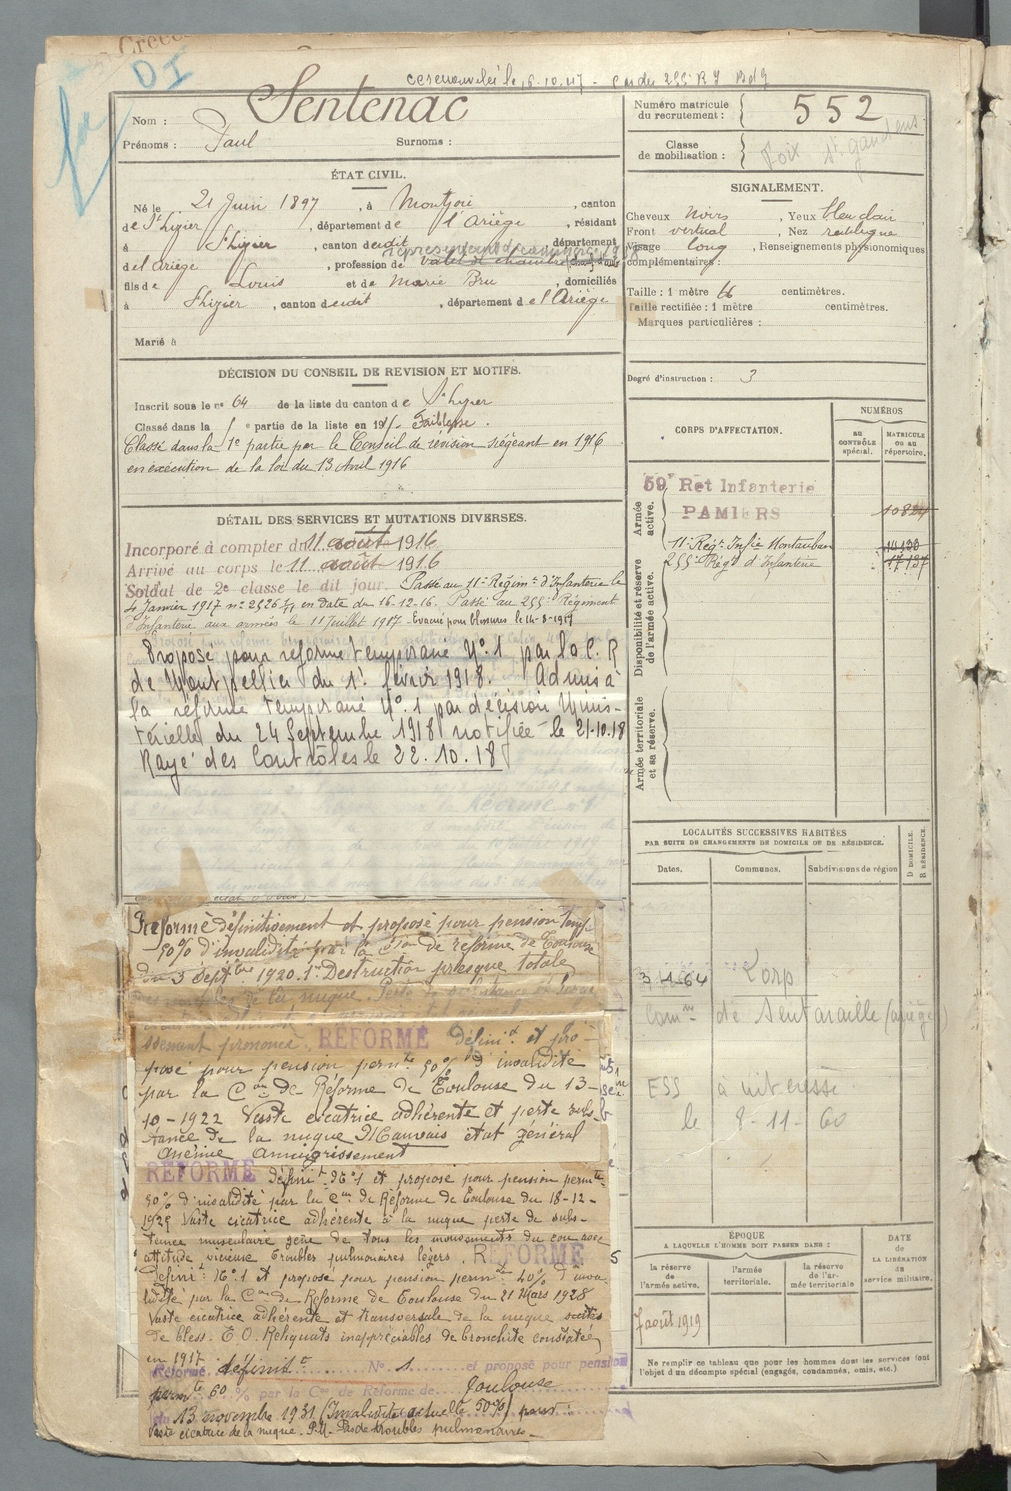 DI
Sentenac
Nom :
Prénoms : Paul Surnoms :
Numéro matricule du recrutement : 552
Classe de mobilisation : Foix St Gaudens
ÉTAT CIVIL.
Né le 21 Juin 1897, à Montjoie, canton
de St Lizier, département de l'Ariège, résidant
à St Lizier, canton dudit, département
de l'Ariège, profession de valet de chambre
fils de Louis et de Marie Bru, domiciliés
à St Lizier, canton dudit, département de l'Ariège
Marié à
SIGNALEMENT.
Cheveux noirs, Yeux bleu clair
Front vertical, Nez rectiligne
Visage long, Renseignements physionomiques
complémentaires :
Taille : 1 mètre 66 centimètres.
Taille rectifiée : 1 mètre centimètres.
Marques particulières :
Degré d'instruction : 3
DÉCISION DU CONSEIL DE REVISION ET MOTIFS.
Inscrit sous le no 64 de la liste du canton de St Lizier
Classé dans la e partie de la liste en 19 Faiblesse.
Classé dans la 1e partie par le Conseil de révision siégeant en 1916
en exécution de la loi du 13 Avril 1916
DÉTAIL DES SERVICES ET MUTATIONS DIVERSES.
Incorporé à compter du 11 août 1916
Arrivé au corps le 11 août 1916
Soldat de 2e classe le dit jour. Passé au 11e Régimt d'Infanterie le
4 Janvier 1917 en date du 16-12-16. Passé au 255e Régiment
d'Infanterie aux armées le 11 Juillet 1917 - Evacué pour blessures le 14-8-1917
Proposé pour réforme temporaire No 1 par la C. R
de Montpellier du 1r février 1918. Admis à
la réforme temporaire No 1 par décision Minis-
térielle du 24 Septembre 1918 notifiée le 21-10-18
Rayé des Contrôles le 22.10.18
Réformé définitivement et proposé pour pension temp
50% d'invalidité par la Cion de réforme de Toulouse
du 3 Septbre 1920. 1° Destruction presque totale
des muscles de la nuque.
RÉFORMÉ définit et pro-
posé pour pension permte 50% d'invalidité
par la Con de Réforme de Toulouse du 13-
10-1922 Vaste cicatrice adhérente et perte subs-
tance de la nuque Mauvais état général
anémie amaigrissement
RÉFORMÉ définit No 1 et proposé pour pension permte
50% d'invalidité par la Con de Réforme de Toulouse du 18-12-
1925 Vaste cicatrice adhérente à la nuque perte de subs-
tance musculaire gêne de tous les mouvements du cou avec
attitude vicieuse troubles pulmonaires légers. RÉFORMÉ
définit No 1 et proposé pour pension permte 40% d'inva-
lidité par la Con de Réforme de Toulouse du 21 Mars 1928
Vaste cicatrice adhérente et transversale de la nuque suites
de bless. E O. Reliquats inappréciables de bronchite constatée
en 1917
Réformé définit No 1 et proposé pour pension
permte 60 % par la Con de Réforme de Toulouse
du 13 novembre 1931 (Invalidité actuelle 50%) pour :
Vaste cicatrice de la nuque. P.M. Pas de troubles pulmonaires.
CORPS D'AFFECTATION.
NUMÉROS
au CONTRÔLE spécial.
MATRICULE ou au répertoire.
Armée active.
59e Rét Infanterie
PAMIERS
11e Régt Infie Montauban
255e Régt d'Infanterie 17137
Disponibilité et réserve de l'armée active.
Armée territoriale et sa réserve.
LOCALITÉS SUCCESSIVES HABITÉES
PAR SUITE DE CHANGEMENTS DE DOMICILE OU DE RÉSIDENCE.
D DOMICILE. R RÉSIDENCE.
Dates. Communes. Subdivisions de région
3-1-64 Lorp
Comne de Sentaraille (Ariège)
ESS à intéressé
le 8-11-60
ÉPOQUE
A LAQUELLE L'HOMME DOIT PASSER DANS :
DATE de LA LIBÉRATION du service militaire.
la réserve de l'armée active.
l'armée territoriale.
la réserve de l'armée territoriale
7 août 1919
Ne remplir ce tableau que pour les hommes dont les services font
l'objet d'un décompte spécial (engagés, condamnés, omis, etc.)